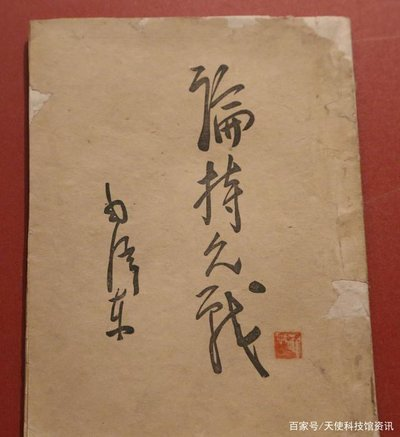 論持久戰
毛泽东
百家号/天使科技馆资讯